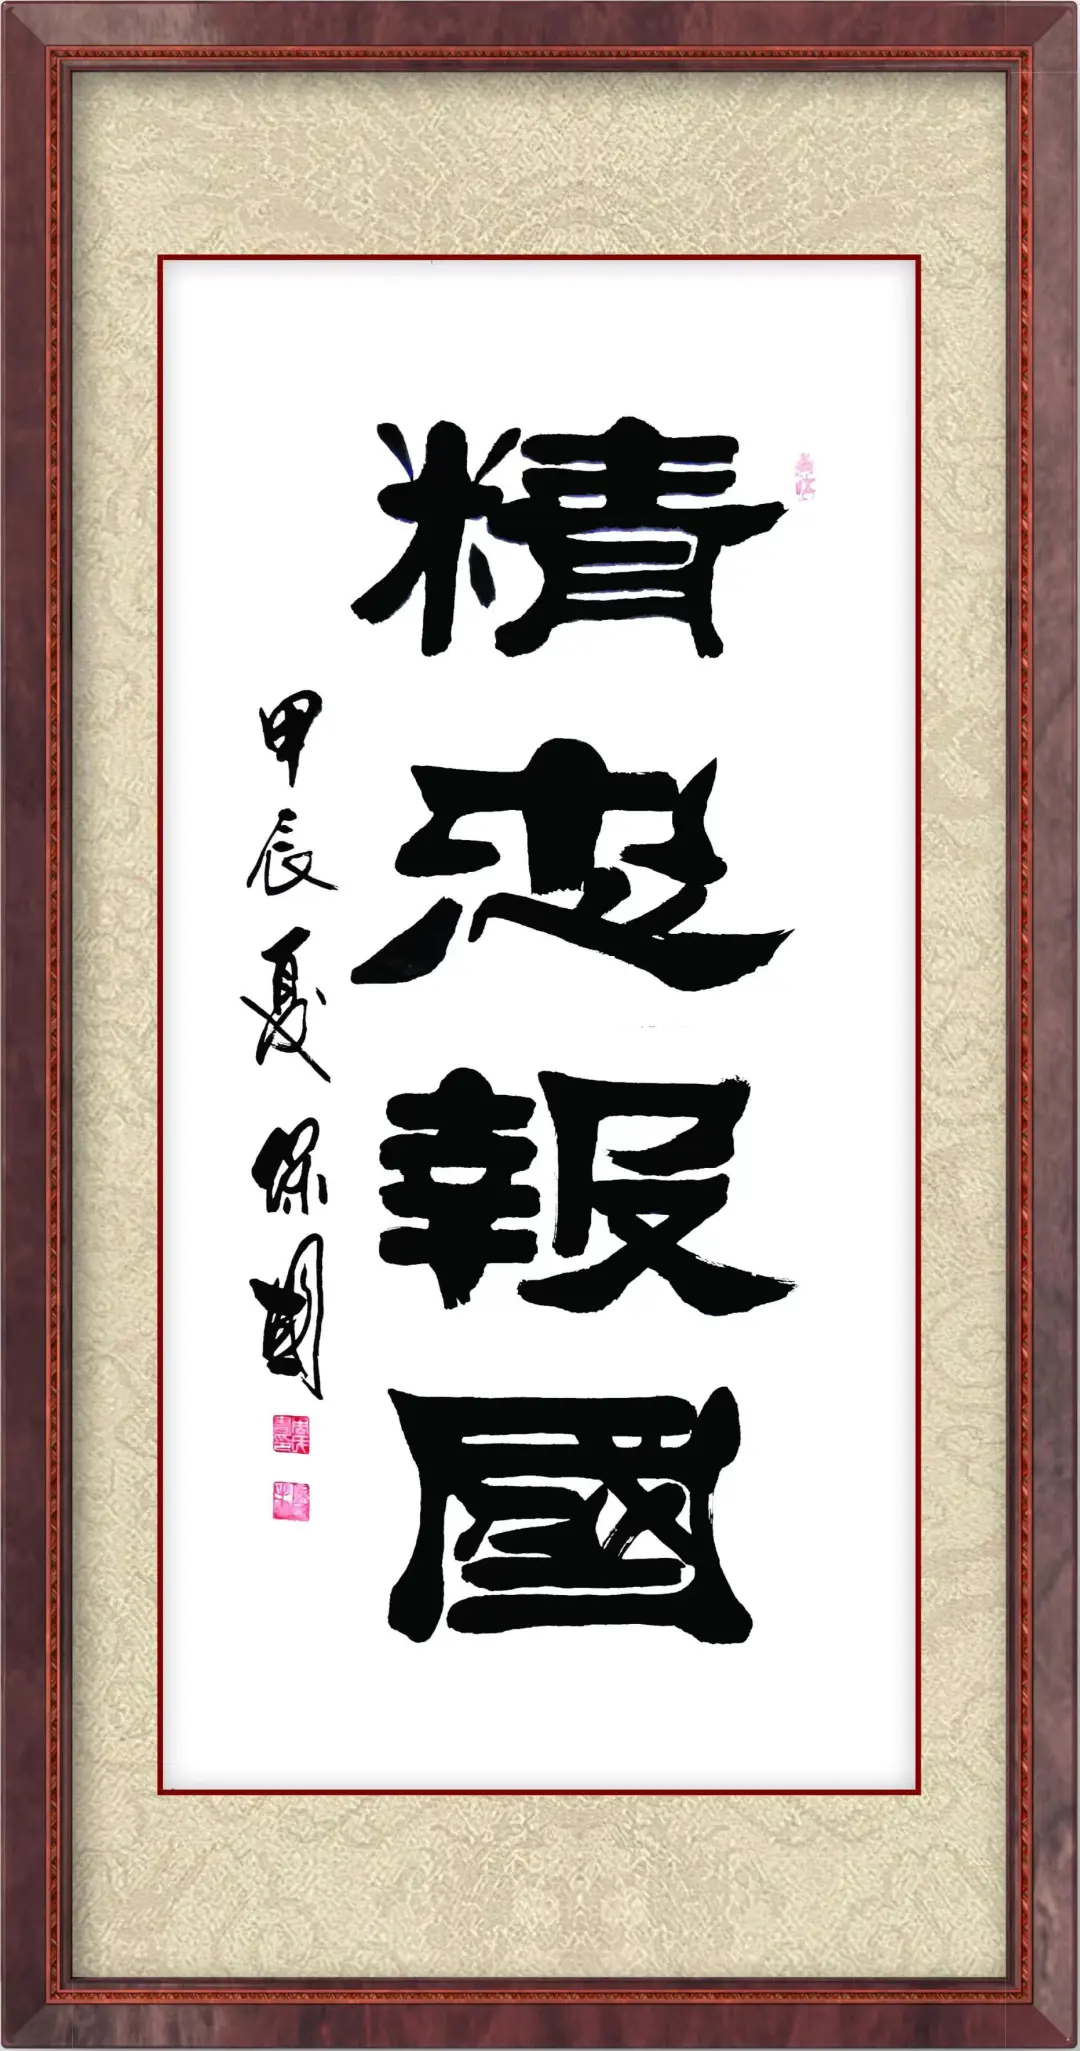 精忠報國
甲辰夏保國